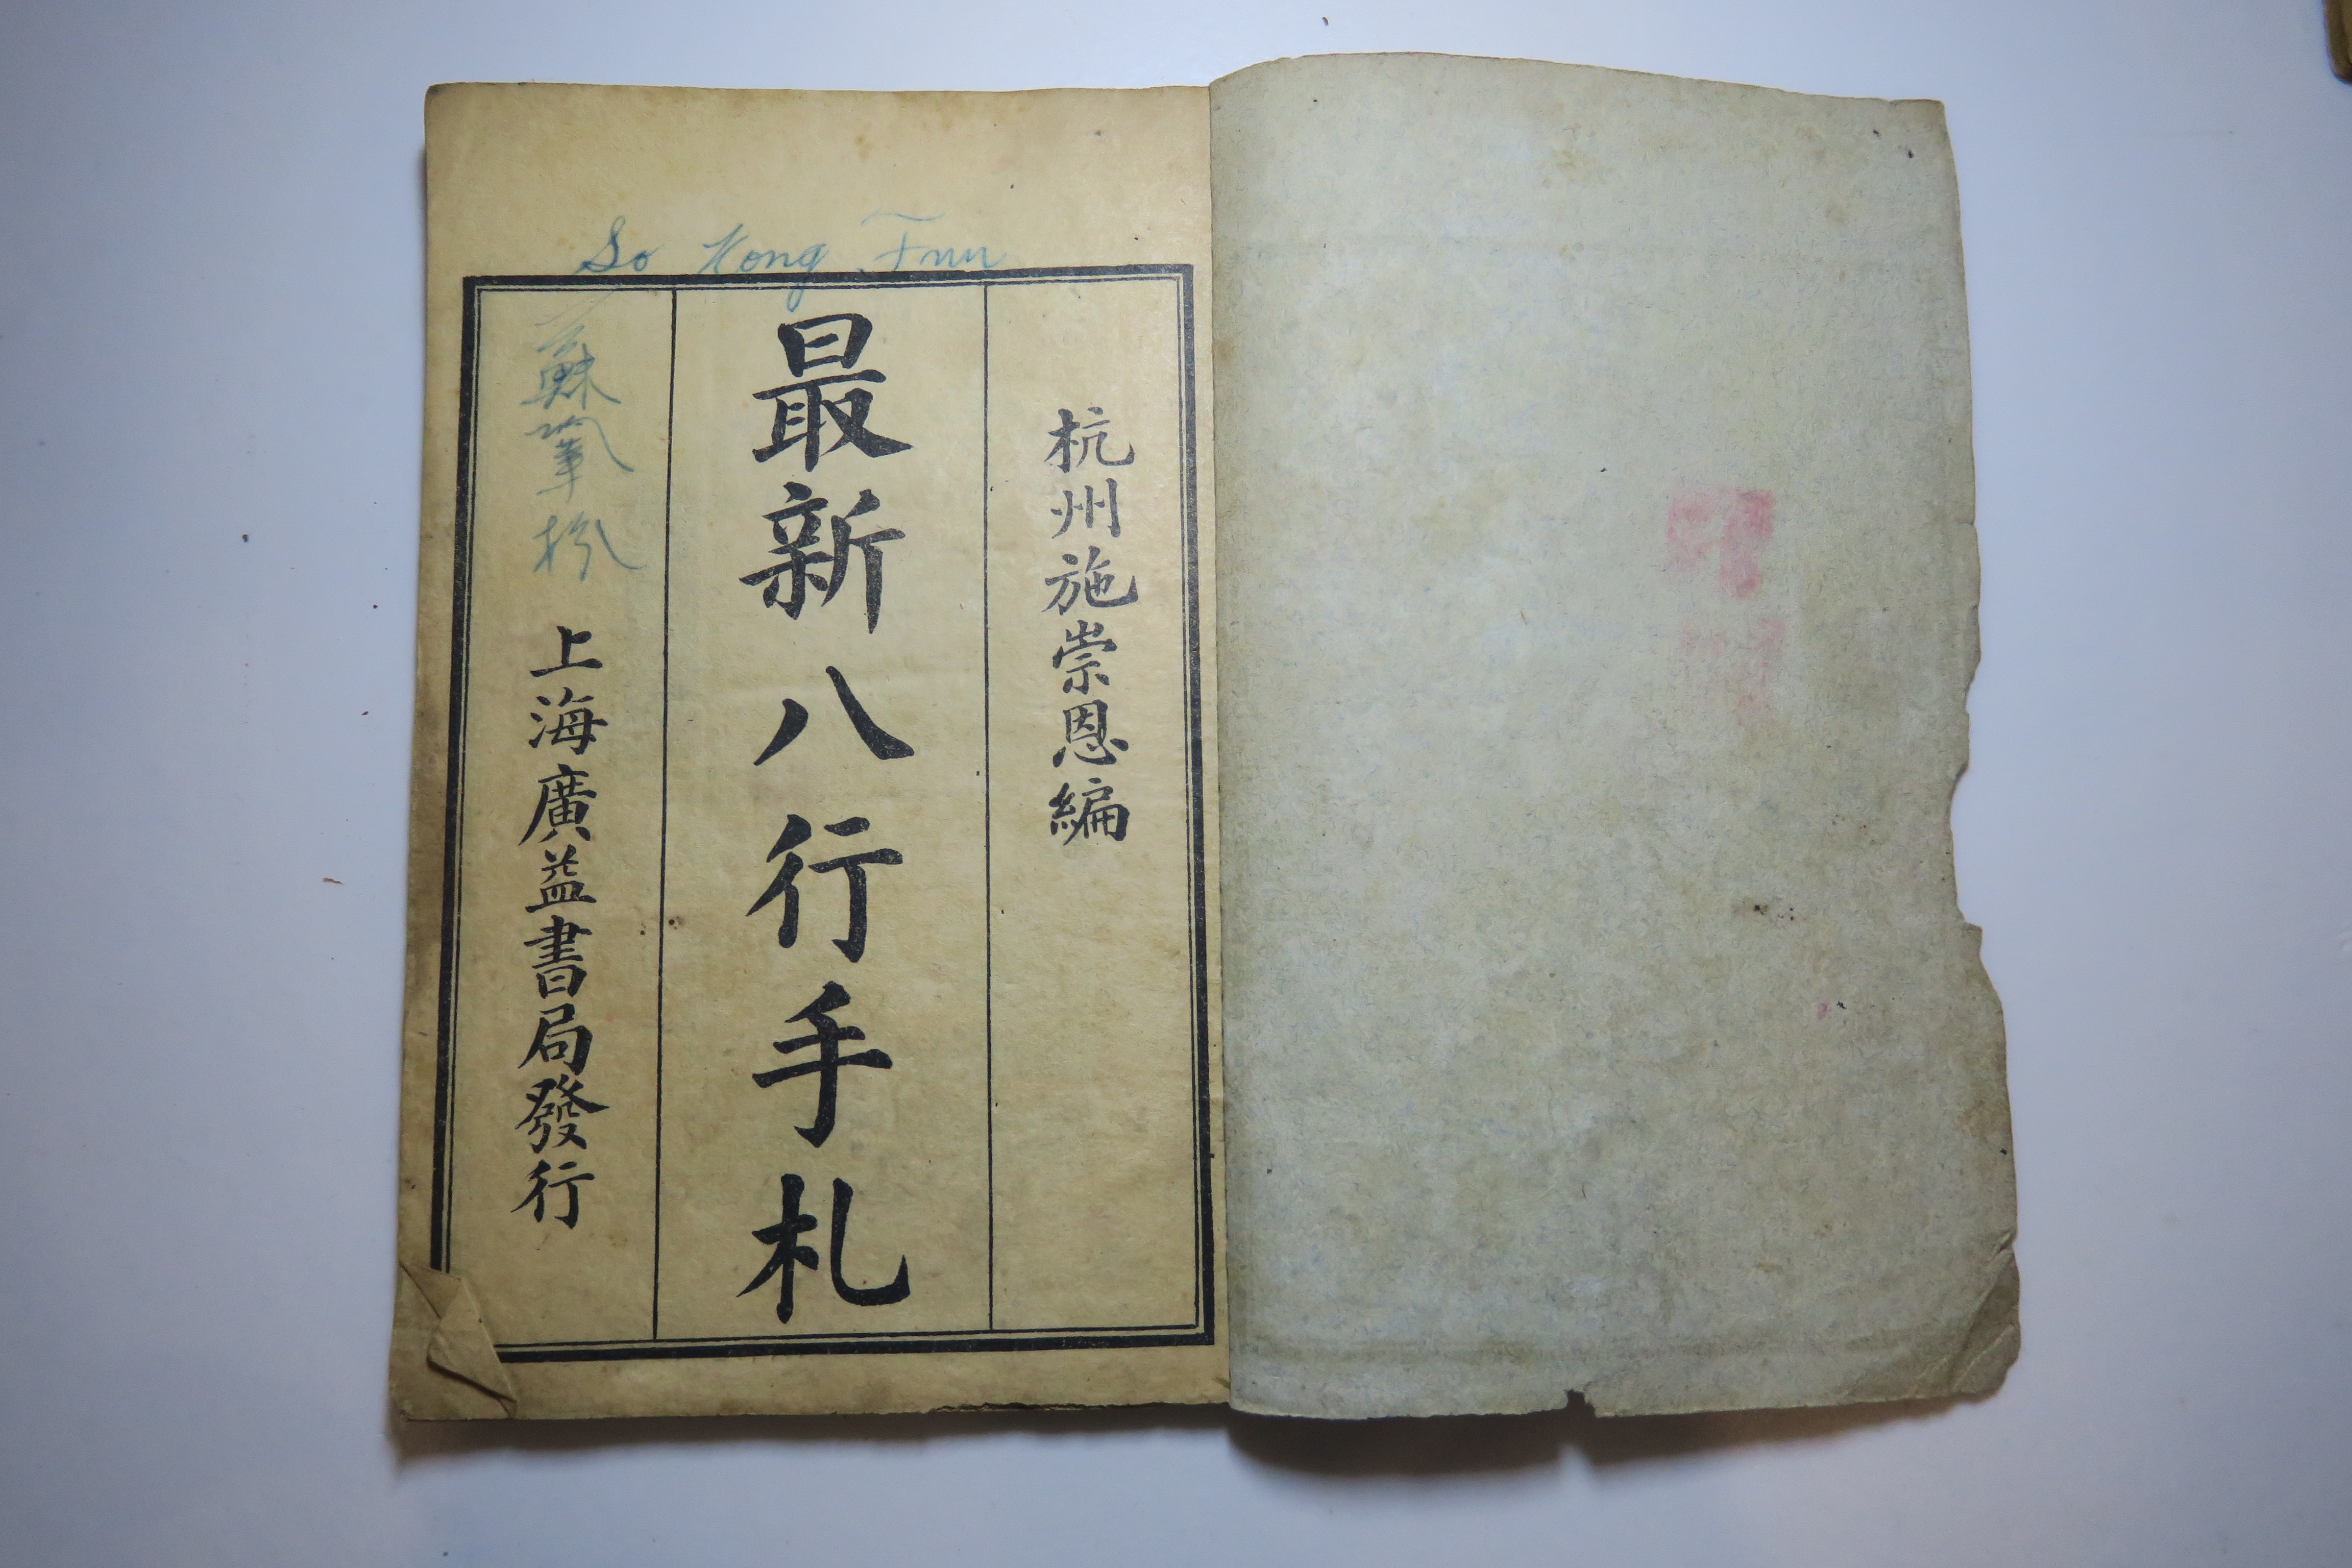 So Kong Fun
杭州施崇恩編
最新八行手札
蘇鞏枌
上海廣益書局發行